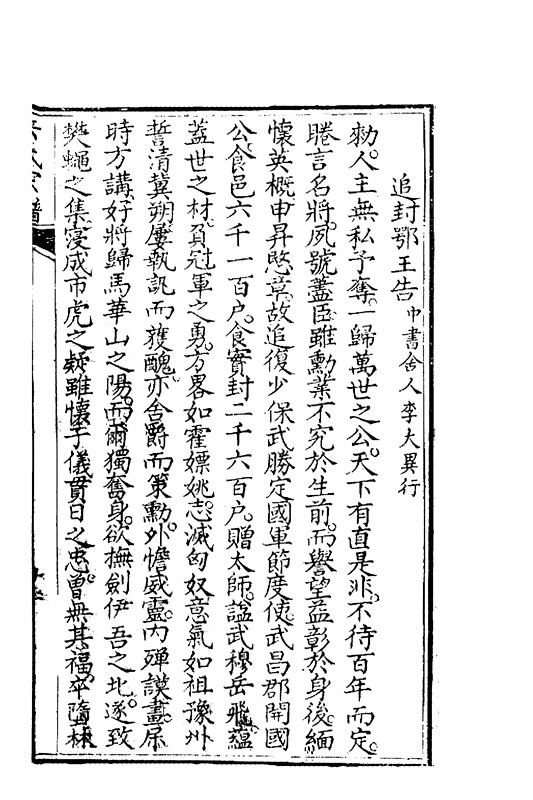 追封鄂王告中書舍人李大異行
勑人主無私予奪一歸萬世之公天下有直是非不待百年而定
睠言名將夙號藎臣雖勳業不究於生前而譽望益彰於身後緬
懷英概申畀愍章故追復少保武勝定國軍節度使武昌郡開國
公食邑六千一百戶食實封二千六百戶贈太師諡武穆岳飛蘊
蓋世之材負冠軍之勇方畧如霍嫖姚志滅匈奴意氣如祖豫州
誓清冀朔屢執訊而獲醜亦舍爵而策勳外憺威靈內殫謨畫屬
時方講好將歸馬華山之陽而爾獨奮身欲撫劍伊吾之北遂致
樊蠅之集寖成市虎之疑雖懷子儀貫日之忠曾無其福卒墮林